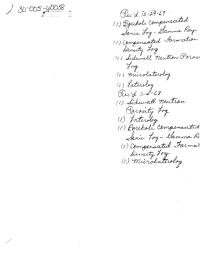 ) 30-005-60058
Rec'd 12-29-69
(1) Borehole Compensated
Sonic Log - Gamma Ray
(1) Compensated Formation
Density Log
(1) Sidewall Neutron Poros
Log
(1) Microlaterolog
(1) Laterolog
Rec'd
(1) Sidewall Neutron
Porosity Log
(1) Laterolog
(1) Borehole Compensated
Sonic Log - Gamma R
(1) Compensated Format
Density Log
(1) Microlaterolog